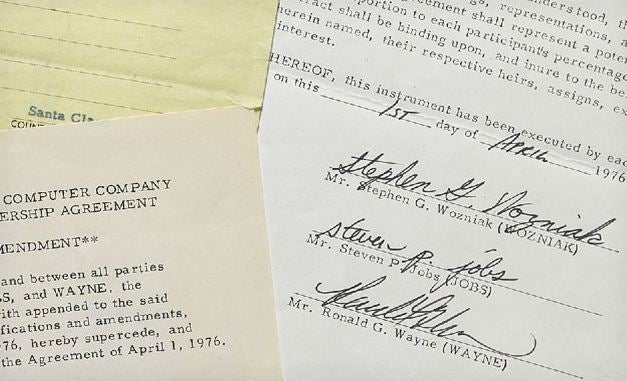 Santa Cla
COUN
COMPUTER COMPANY
ERSHIP AGREEMENT
MENDMENT**
and between all parties
BS, and WAYNE, the
ith appended to the said
fications and amendments,
76, hereby supercede, and
the Agreement of April 1, 1976.
gs, representations, a
reement shall represent a poten
portion to each participant's percentage
ract shall be binding upon, and inure to the be
herein named, their respective heirs, assigns, ex
interest.
HEREOF, this instrument has been executed by eac
on this 1ST day of APRIL 1976
Stephen G. Wozniak
Mr. Stephen G. Wozniak (WOZNIAK)
steven P. jobs
Mr. Steven P. Jobs (JOBS)
Mr. Ronald G. Wayne (WAYNE)